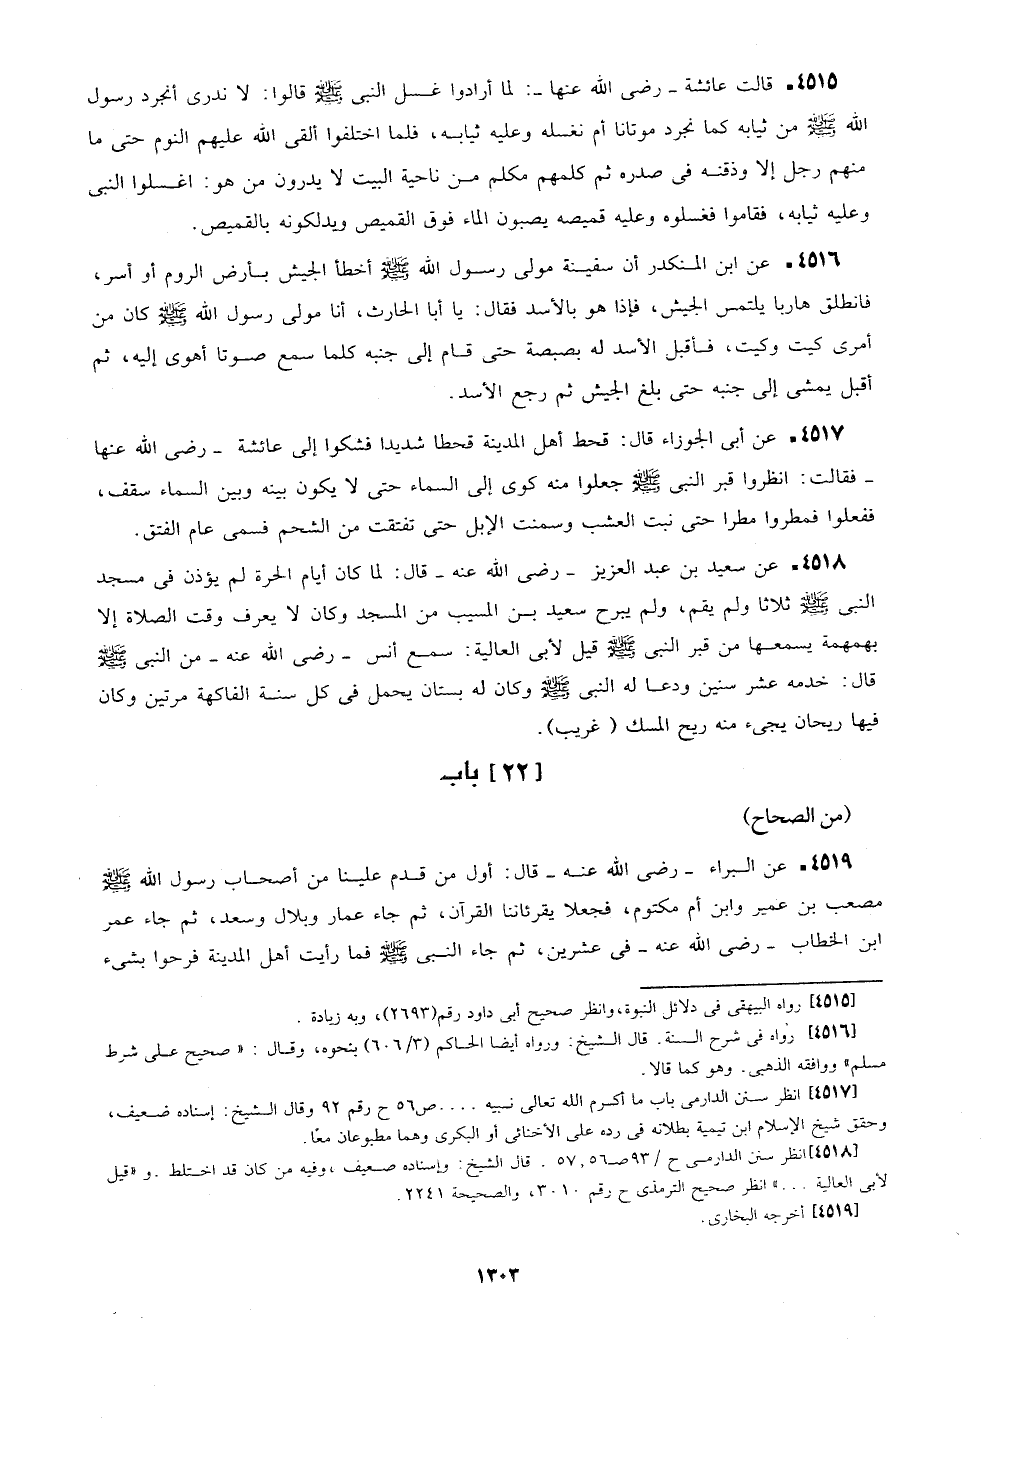 ٤٥١٥. قالت عائشة ـ رضى الله عنها ـ: لما أرادوا غسل النبى ﷺ قالوا: لا ندرى أنجرد رسول
الله ﷺ من ثيابه كما نجرد موتانا أم نغسله وعليه ثيابه، فلما اختلفوا ألقى الله عليهم النوم حتى ما
منهم رجل إلا وذقنه فى صدره ثم كلمهم مكلم من ناحية البيت لا يدرون من هو: اغسلوا النبى
وعليه ثيابه، فقاموا فغسلوه وعليه قميصه يصبون الماء فوق القميص ويدلكونه بالقميص.
٤٥١٦. عن ابن المنكدر أن سفينة مولى رسول الله ﷺ أخطأ الجيش بأرض الروم أو أسر،
فانطلق هاربا يلتمس الجيش، فإذا هو بالأسد فقال: يا أبا الحارث، أنا مولى رسول الله ﷺ كان من
أمرى كيت وكيت، فأقبل الأسد له بصبصة حتى قام إلى جنبه كلما سمع صوتا أهوى إليه، ثم
أقبل يمشى إلى جنبه حتى بلغ الجيش ثم رجع الأسد.
٤٥١٧. عن أبى الجوزاء قال: قحط أهل المدينة قحطا شديدا فشكوا إلى عائشة ـ رضى الله عنها
ـ فقالت: انظروا قبر النبى ﷺ جعلوا منه كوى إلى السماء حتى لا يكون بينه وبين السماء سقف،
ففعلوا فمطروا مطرا حتى نبت العشب وسمنت الإبل حتى تفتقت من الشحم فسمى عام الفتق.
٤٥١٨. عن سعيد بن عبد العزيز ـ رضى الله عنه ـ قال: لما كان أيام الحرة لم يؤذن فى مسجد
النبى ﷺ ثلاثا ولم يقم، ولم يبرح سعيد بن المسيب من المسجد وكان لا يعرف وقت الصلاة إلا
بهمهمة يسمعها من قبر النبى ﷺ قيل لأبى العالية: سمع أنس ـ رضى الله عنه ـ من النبى ﷺ
قال: خدمه عشر سنين ودعا له النبى ﷺ وكان له بستان يحمل فى كل سنة الفاكهة مرتين وكان
فيها ريحان يجىء منه ريح المسك ( غريب).
[٢٢] باب
(من الصحاح)
٤٥١٩. عن البراء ـ رضى الله عنه ـ قال: أول من قدم علينا من أصحاب رسول الله ﷺ
مصعب بن عمير وابن أم مكتوم، فجعلا يقرئاننا القرآن، ثم جاء عمار وبلال وسعد، ثم جاء عمر
ابن الخطاب ـ رضى الله عنه ـ فى عشرين، ثم جاء النبى ﷺ فما رأيت أهل المدينة فرحوا بشىء
[٤٥١٥] رواه البيهقى فى دلائل النبوة، وانظر صحيح أبى داود رقم(٢٦٩٣)، وبه زيادة .
[٤٥١٦] رواه فى شرح السنة. قال الشيخ: ورواه أيضا الحاكم (٦٠٦/٣) بنحوه، وقال : « صحيح على شرط
مسلم» ووافقه الذهبى. وهو كما قالا.
[٤٥١٧] انظر سنن الدارمى باب ما أكرم الله تعالى نبيه ....ص٥٦ ح رقم ٩٢ وقال الشيخ: إسناده ضعيف،
وحقق شيخ الإسلام ابن تيمية بطلانه فى رده على الأخنائى أو البكرى وهما مطبوعان معًا.
[٤٥١٨] انظر سنن الدارمى ح /٩٣صـ٥٧,٥٦ . قال الشيخ: وإسناده ضعيف ، وفيه من كان قد اختلط . و «قيل
لأبى العالية ...» انظر صحيح الترمذى ح رقم ٣٠١٠، والصحيحة ٢٢٤١.
[٤٥١٩] أخرجه البخارى.
١٣٠٣